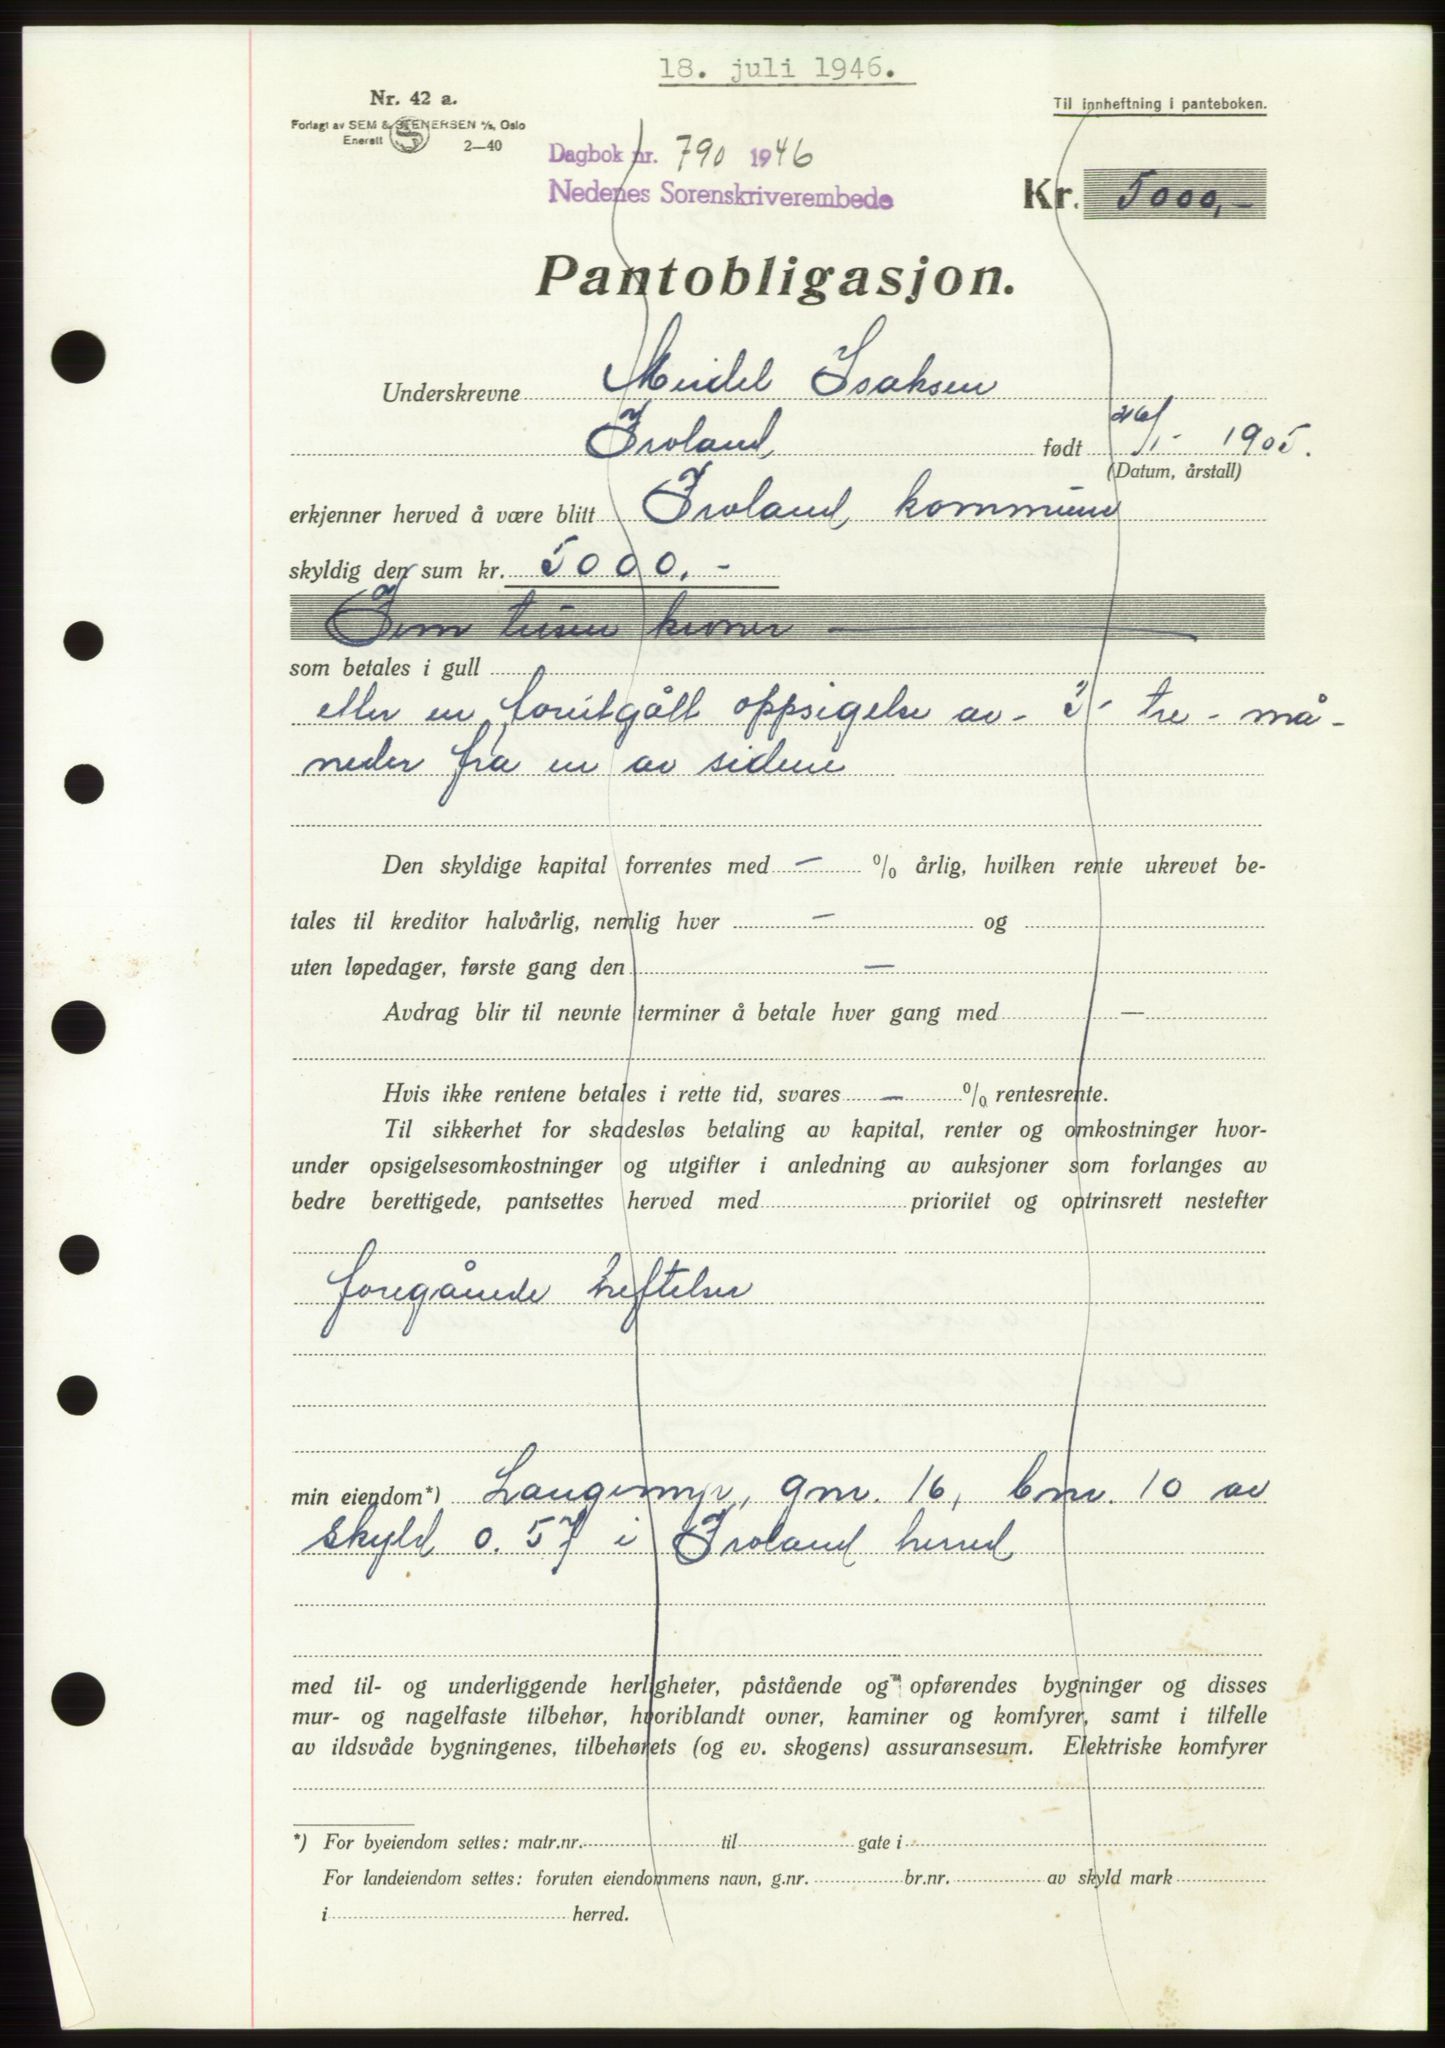 18. juli 1946.
Nr. 42 a.
Til innheftning i panteboken.
Forlagt av SEM & STENERSEN A/S, Oslo
Enerett
2—40
Dagbok nr. 790 1946
Nedenes Sorenskriverembede
Kr. 5000,-
Pantobligasjon.
Underskrevne Meidel Isaksen
Froland født 26/1- 1905.
(Datum, årstall)
erkjenner herved å være blitt Froland kommune
skyldig den sum kr. 5000.-
Fem tusen kroner —
som betales i gull
etter en forutgått oppsigelse av - 3 - tre - må-
neder fra en av sidene
Den skyldige kapital forrentes med — % årlig, hvilken rente ukrevet be-
tales til kreditor halvårlig, nemlig hver — og
uten løpedager, første gang den —
Avdrag blir til nevnte terminer å betale hver gang med —
Hvis ikke rentene betales i rette tid, svares — % rentesrente.
Til sikkerhet for skadesløs betaling av kapital, renter og omkostninger hvor-
under opsigelsesomkostninger og utgifter i anledning av auksjoner som forlanges av
bedre berettigede, pantsettes herved med prioritet og optrinsrett nestefter
foregående heftelser
min eiendom*) Langemyr, gnr. 16, bnr. 10 av
skyld 0.57 i Froland herred
med til- og underliggende herligheter, påstående og opførendes bygninger og disses
mur- og nagelfaste tilbehør, hvoriblandt ovner, kaminer og komfyrer, samt i tilfelle
av ildsvåde bygningenes, tilbehørets (og ev. skogens) assuransesum. Elektriske komfyrer
*) For byeiendom settes: matr.nr. til gate i
For landeiendom settes: foruten eiendommens navn, g.nr. br.nr. av skyld mark
i herred.